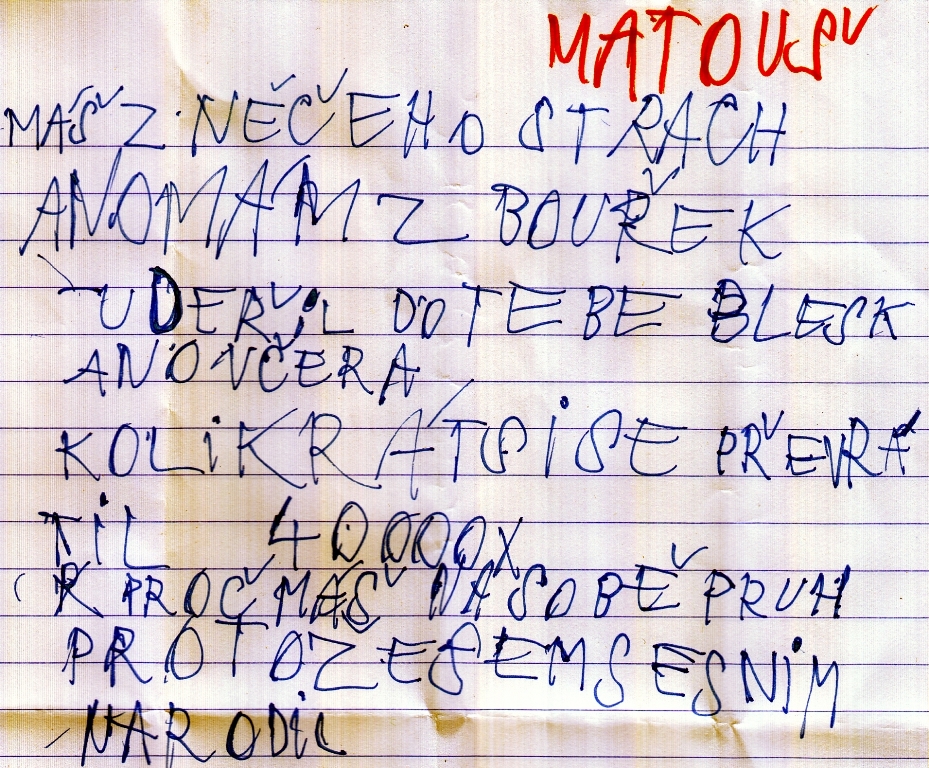 MATOUŠ
MÁŠ Z NĚČEHO STRACH
ANOMÁM Z BOUŘEK
UDEŘIL DOTEBE BLESK
ANO VČERA
KOLIKRÁTSISE PŘEVRÁ
TIL 40000X
PROČ MÁŠ NASOBĚ PRUH
PROTOZESEMSESNIM
NARODIL